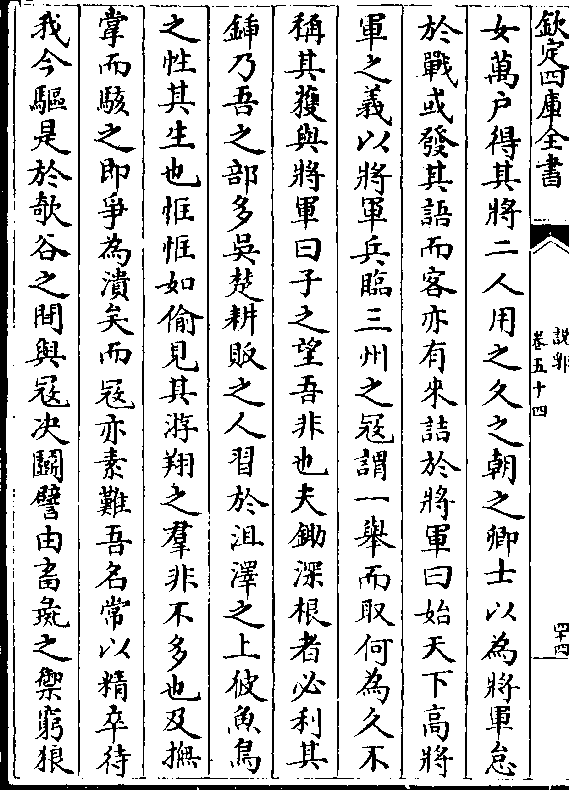 欽定四庫全書
説郛
卷五十四
四十四
女萬户得其將二人用之久之朝之卿士以為將軍怠
於戰或發其語而客亦有來詰於將軍曰始天下高將
軍之義以將軍兵臨三州之冦謂一舉而取何為久不
稱其獲與將軍曰子之望吾非也夫鋤深根者必利其
鍤乃吾之部多吳楚耕販之人習於沮澤之上彼魚鳥
之性其生也恇恇如偷見其游翔之羣非不多也及撫
掌而駭之即爭為潰矣而冦亦素難吾名常以精卒待
我今驅是於欹谷之間與冦决鬭譬由畜彘之禦窮狼